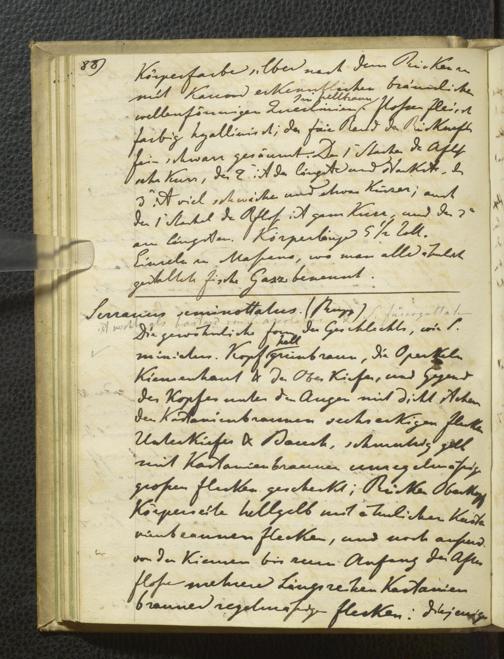 88)
Körperfarbe silber nach dem Rücken zu
mit kaum erkenntlichen bräunlichen
wellenförmigen Querlinien; flossen fleisch
farbig hyallinisch; der Rand der Rückenfl
fein schwarz gesäumt. Der 1 Stachel der Aftfl
sehr kurz, der 2t ist der längste und stärkste, der
3t ist viel schwächer und etwas kürzer; auch
der 1 Stachel der Rflos ist ganz kurz und der 3t
am längsten. Körperlänge 5 1/2 Zoll.
Einzeln in Massaua, wo man alle ähnlich
gestaltete fische Gasz benennt.
Serranus seminottatus. (Rupp)
Die gewöhnliche form des Geschlechts, wie S.
miniatus. Kopf hell grünbraun, die Operkeln
Kiemenhaut & der Ober Kiefer, und Gegend
des Kopfes unter den Augen mit dicht stehen
den Kastanienbraunen sechseckigen flecken
Unterkiefer & Bauch, schmutzig gelb
mit Kastanienbraunen unregelmäsig
grosen flecken gescheckt; Rücken Oberkopf
Körperseite hellgelb mit ähnlichen Kasta
nienbraunen flecken, und noch auserd
von den Kiemen bis zum Anfang der After
flosse mehrere Längsreihen Kastanien
brauner regelmäsiger flecken: diejenige